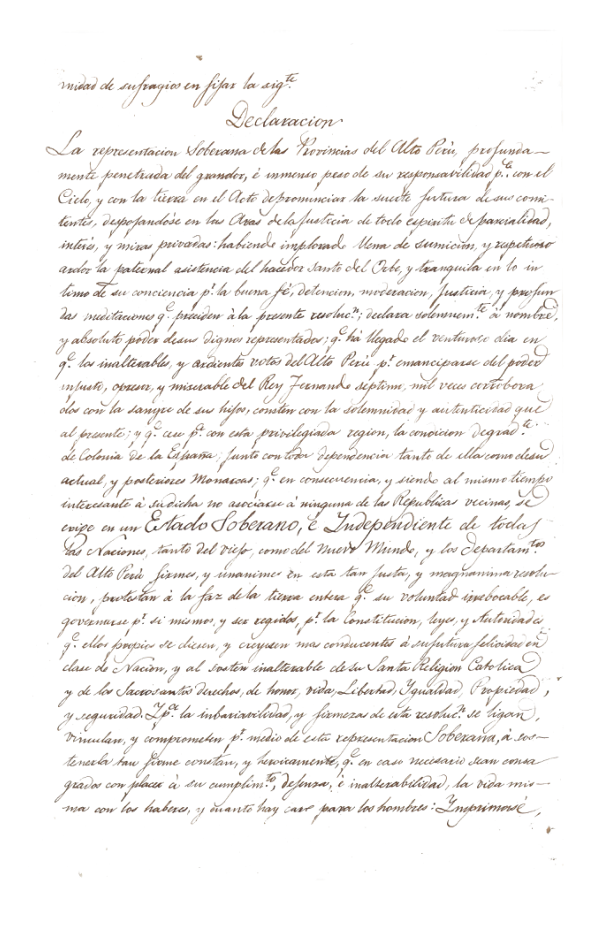 midad de sufragios en fijar la sig.te
Declaracion
La representacion Soberana de las Provincias del Alto Perú, profunda-
mente penetrada del grandor, é inmenso peso de su responsabilidad p.a con el
Cielo, y con la tierra en el Acto de pronunciar la suerte futura de sus comi-
tentes, despojandóse en las Aras de la justicia de todo espiritu de parcialidad,
interés, y miras privadas: habiendo implorado llena de sumicion, y respetuoso
ardor la paternal asistencia del hacedor Santo del Orbe, y tranquila en lo in
timo de su conciencia p.r la buena fé, detencion, moderacion, Justicia, y profun
das meditaciones q.e presiden á la presente resoluc.n; declara solennem.te á nombre,
y absoluto poder de sus dignos representados; q.e há llegado el venturoso dia en
q.e los inalterables, y ardientes votos del Alto Perú p.r emanciparse del poder
injusto, opresor, y miserable del Rey Fernando septimo, mil veces corrobora
dos con la sangre de sus hijos, consten con la solemnidad y autenticidad que
al presente; y q.e cese p.a con esta privilegiada region, la condicion degrad.te
de Colonia de la España: junto con toda dependencia tanto de ella como de su
actual, y posteriores Monarcas; q.e en consecuencia, y siendo al mismo tiempo
interesante á su dicha no asociarse á ninguna de las Republicas vecinas, se
erige en un Estado Soberano, é Independiente de todas
las Naciones, tanto del viejo, como del nuevo Mundo, y los Departam.tos
del Alto Perú firmes, y unanimes en esta tan justa, y magnanima resolu-
cion, protestan á la faz de la tierra entera q.e su voluntad irrebocable, es
governarse p.r si mismos, y ser regidos, p.r la Constitucion, leyes, y Autoridades
q.e ellos própios se diesen, y creyesen mas conducentes á su futura felicidad en
clase de Nacion, y al sosten inalterable de su Santa Religion Catolica
y de los Sacrosantos derechos, de honor, vida, Libertad, Ygualdad, Propiedad,
y seguridad. Y p.a la inbariavilidad, y firmeza de esta resoluc.n se ligan,
vinculan, y comprometen p.r medio de esta representacion Soberana, á sos-
tenerla tan firme constán, y heroicamente, q.e en caso necesario sean consa
grados con placer á su cumplim.to, defensa, é inalterabilidad, la vida mis-
ma con los haberes, y cuanto hay caro para los hombres: Ymprimasé,